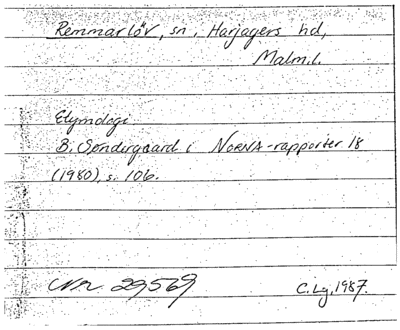 Remmarlöv, sn, Harjagers hd,
Malm.l.
Etymologi
B. Søndergaard i NORNA-rapporter 18
(1980), s. 106.
Nr. 29569
C. Lg. 1987.